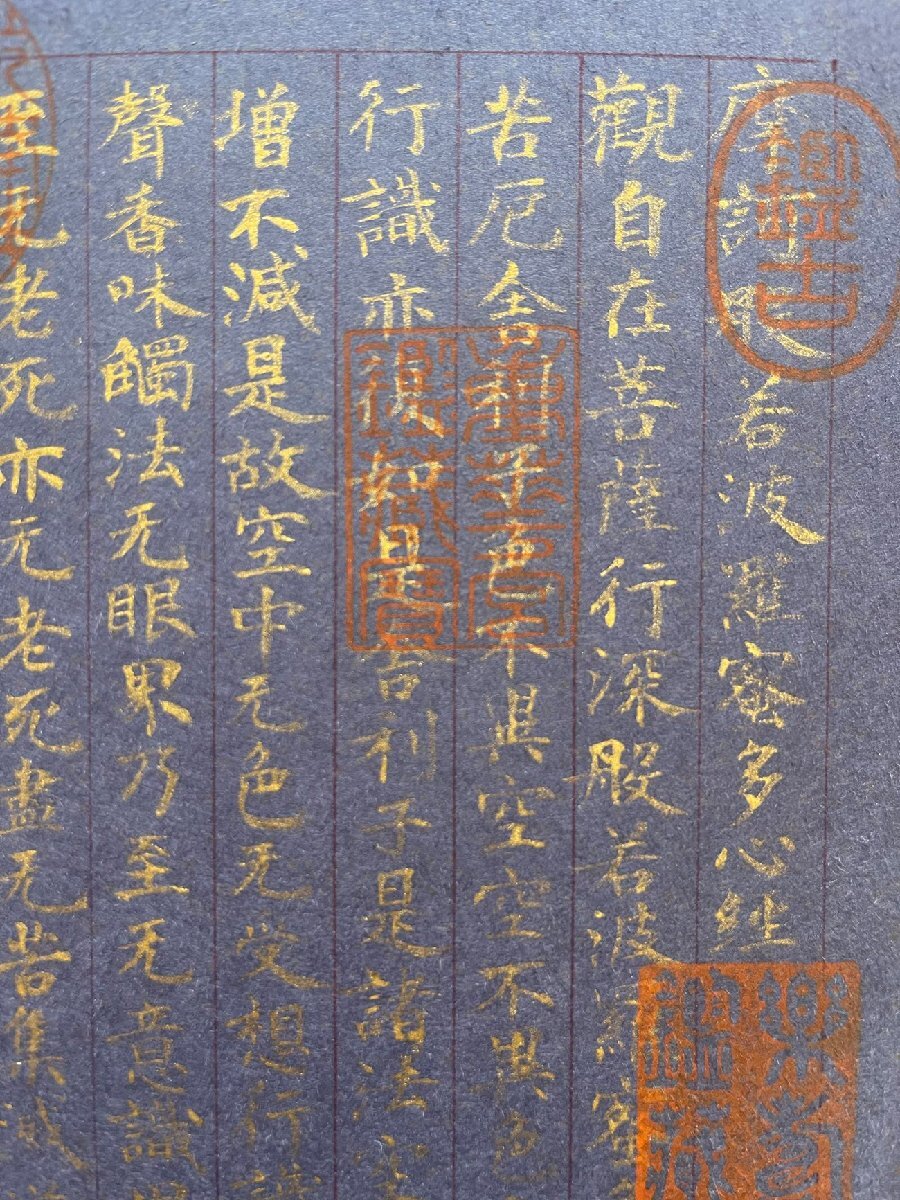 摩訶般若波羅蜜多心経
觀自在菩薩行深般若波羅蜜
苦厄舍利子色不異空空不異色
行識亦復如是舍利子是諸法空
增不減是故空中无色无受想行識
聲香味觸法无眼界乃至无意識界
至无老死亦无老死盡无苦集滅道